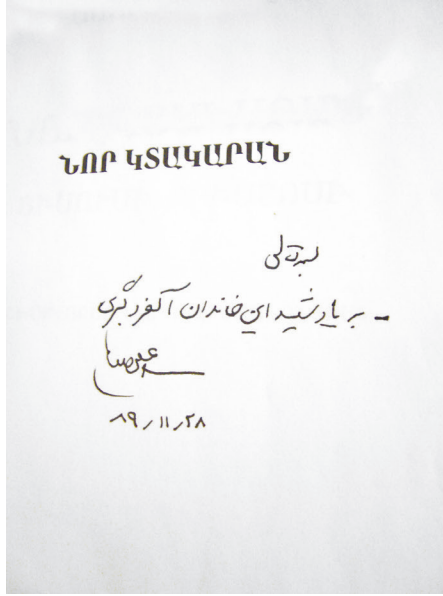 ՆՈՐ ԿՏԱԿԱՐԱՆ
بسمه تعالی
- به یاد شهید این خاندان آلفرد گبری
۸۹/۱۱/۲۸